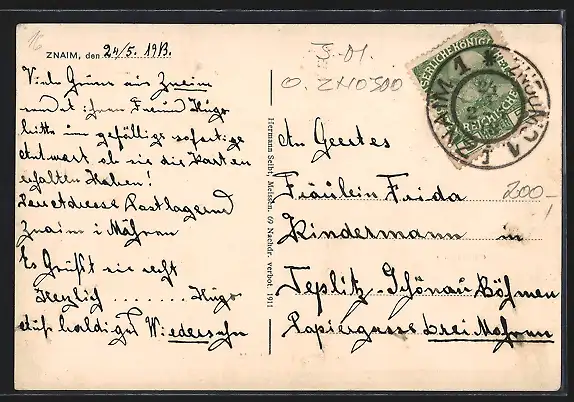 ZNAIM, den 24/5. 1913.
Viele Grüsse aus Znaim
sendet ihnen Freund Hugo
bitte um gefällige sofortige
Antwort ob sie die Karten
erhalten haben!
Postlagernd
Znaim i Mähren
Es Grüßt sie recht
Herzlich ........ Hugo
auf baldiges Wiedersehn
Hermann Seibt, Meissen. 69 Nachdr. verbot. 1911
KAISERLICHE KÖNIGL
REICHISCHE
ZNAIM 1
ZNOJMO 1
24
200-
An Geertes
Fräulein Frida
Kindermann in
Teplitz-Schönau Böhmen
Papiergasse drei Mohren